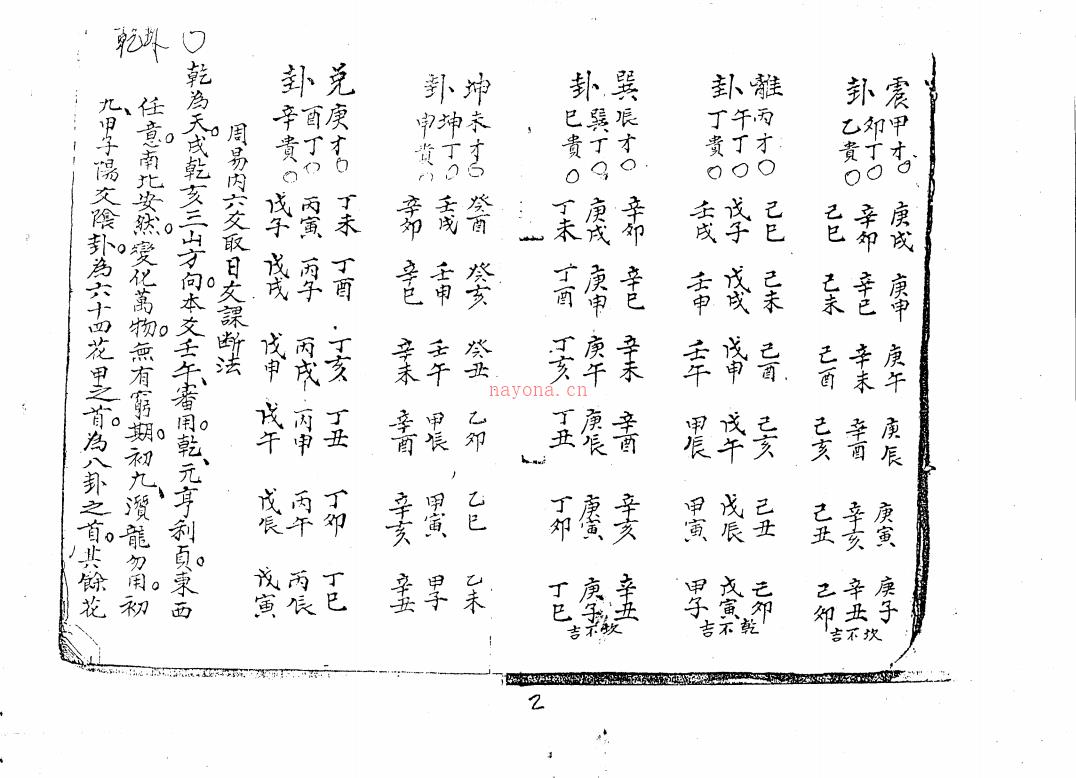 震甲才〇庚戌庚申庚午庚辰庚寅庚子
卦卯丁〇辛卯辛巳辛未辛酉辛亥辛丑坎不吉
乙貴〇己巳己未己酉己亥己丑己卯
離丙才〇己巳己未己酉己亥己丑己卯
卦午丁〇戊子戊戌戊申戊午戊辰戊寅乾不吉
丁貴〇壬戌壬申壬午甲辰甲寅甲子
巽辰才〇辛卯辛巳辛未辛酉辛亥辛丑
卦巽丁〇庚戌庚申庚午庚辰庚寅庚子坎不吉
巳貴〇丁未丁酉丁亥丁丑丁卯丁巳
坤未才〇癸酉癸亥癸丑乙卯乙巳乙未
卦坤丁〇壬戌壬申壬午甲辰甲寅甲子
申貴〇辛卯辛巳辛未辛酉辛亥辛丑
兌庚才〇丁未丁酉丁亥丁丑丁卯丁巳
卦酉丁〇丙寅丙子丙戌丙申丙午丙辰
辛貴〇戊子戊戌戊申戊午戊辰戊寅
周易內六爻取日交課断法
〇乾為天。戌乾亥三山方向。本爻壬午、審用乾、元亨利貞。東西
乾卦
任意。南北安然。變化萬物。無有窮期。初九、潛龍勿用。初
九、甲子陽爻陰卦。為六十四花甲之首。為八卦之首。其餘花
nayona.cn
2